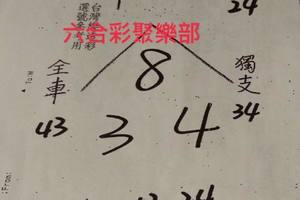 24
台灣彩
選號參考用
六合彩聚樂部
8
全車
獨支
43
3
4
34
24